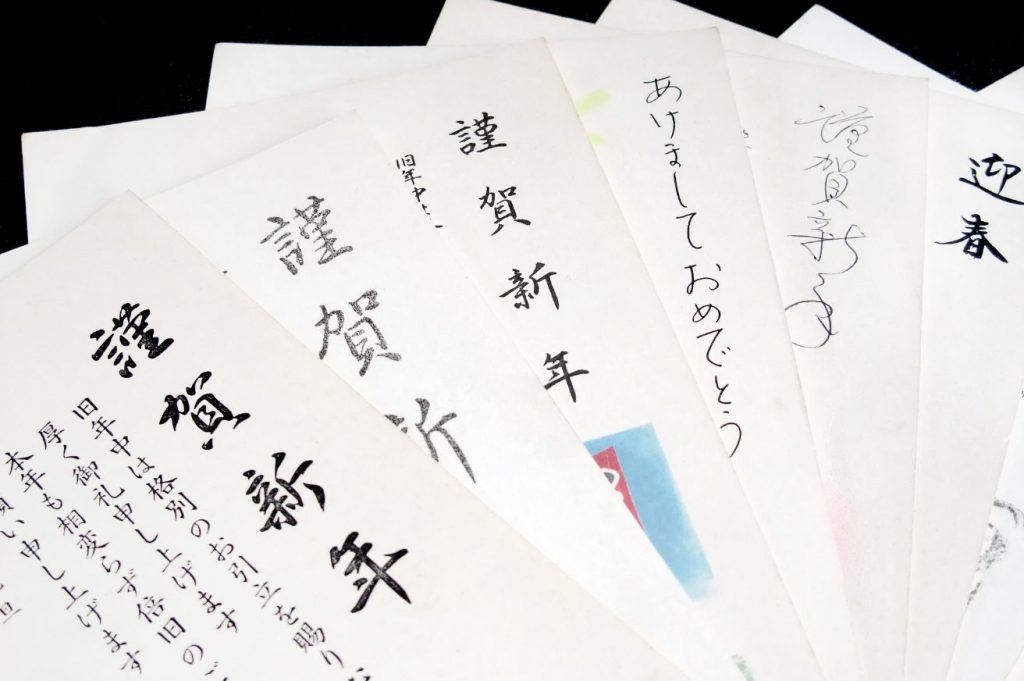 謹賀新年
旧年中は格別のお引立を賜り
厚く御礼申し上げます
本年も相変らず倍旧のご
願い申し上げます
旦
謹賀新
謹賀新年
旧年中
あけましておめでとう
謹賀新年
迎春